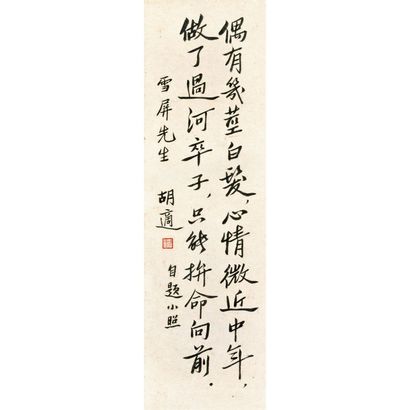 偶有幾莖白髮,心情微近中年,
做了過河卒子,只能拚命向前.
雪屏先生
胡適
自題小照